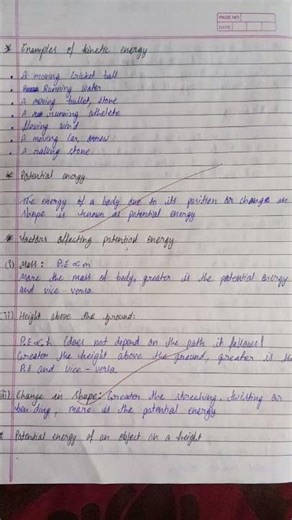 PAGE NO.
DATE
* Examples of kinetic energy
• A moving cricket ball
• Running water
• A moving bullet, stone
• A running athelete
• flowing wind
• A moving car, arrow
• A rolling stone
* Potential energy
The energy of a body due to its position or change in
shape is known as potential energy
* Factors affecting potential energy
(i) Mass : P.E ∝ m
More the mass of body, greater is the potential energy
and vice-versa.
(ii) Height above the ground:
P.E ∝ h (does not depend on the path it follows)
Greater the height above the ground, greater is the
P.E and vice-versa.
(iii) Change in shape: Greater the streching, twisting or
bending, more is the potential energy
* Potential energy of an object on a height